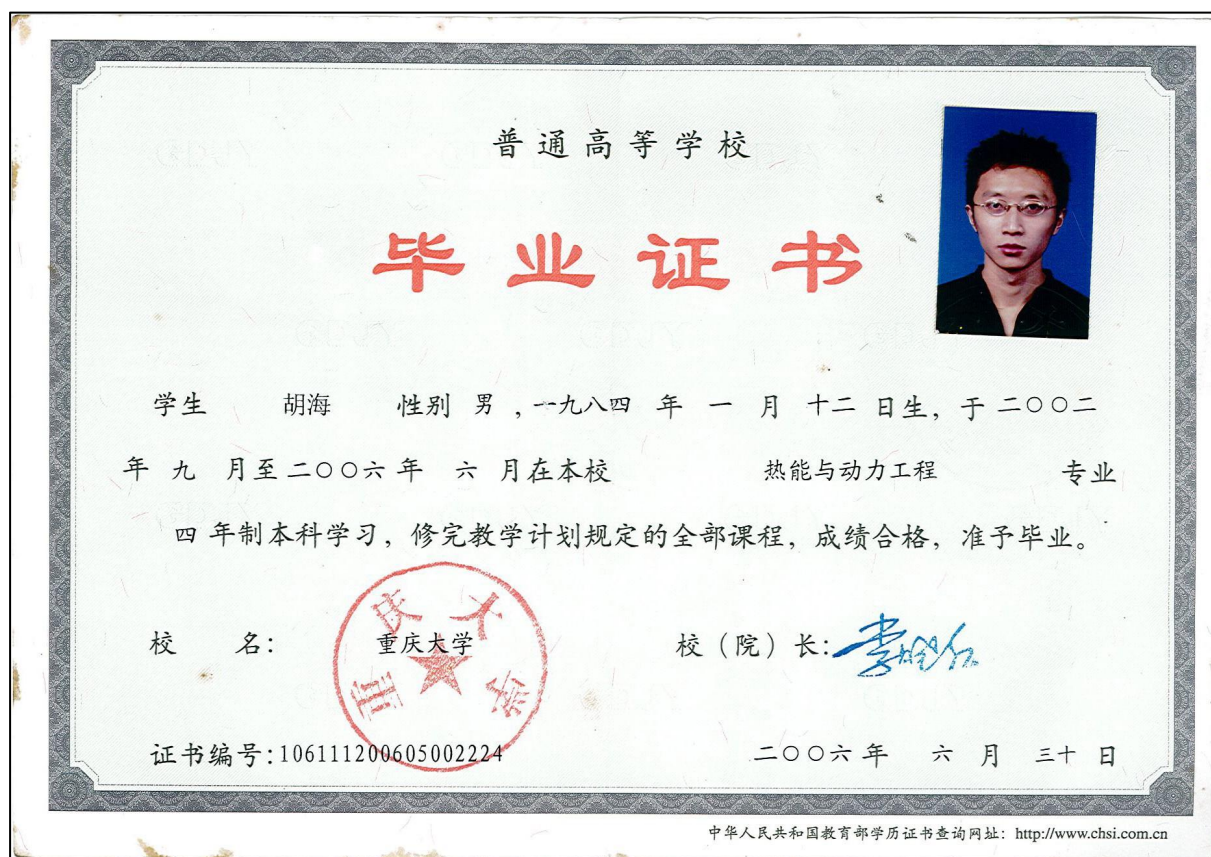 普通高等学校
毕业证书
学生 胡海 性别 男 , 一九八四 年 一 月 十二 日生, 于 二〇〇二
年 九 月至 二〇〇六 年 六 月在本校 热能与动力工程 专业
四 年制本科学习, 修完教学计划规定的全部课程, 成绩合格, 准予毕业。
校 名: 重庆大学 校(院)长:
重庆大学
证书编号:106111200605002224 二〇〇六 年 六 月 三十 日
中华人民共和国教育部学历证书查询网址: http://www.chsi.com.cn